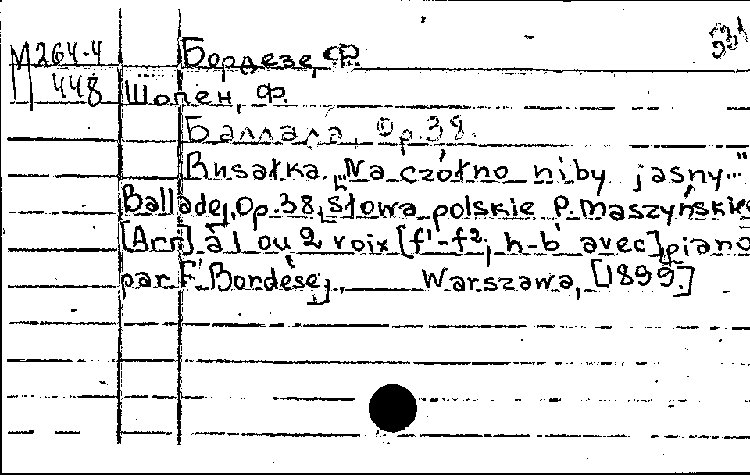 М 264-4 Бордезе, Ф.
П 448 Шопен, Ф.
Баллада, Op. 38.
Rusałka. „Na czółno niby jasny..."
[Ballade], Op. 38, słowa polskie P. Maszyńskie
[Arr] à 1 ou 2 voix [f¹-f², h-b¹ avec] piano
par F. Bordese]. Warszawa, [1899.]